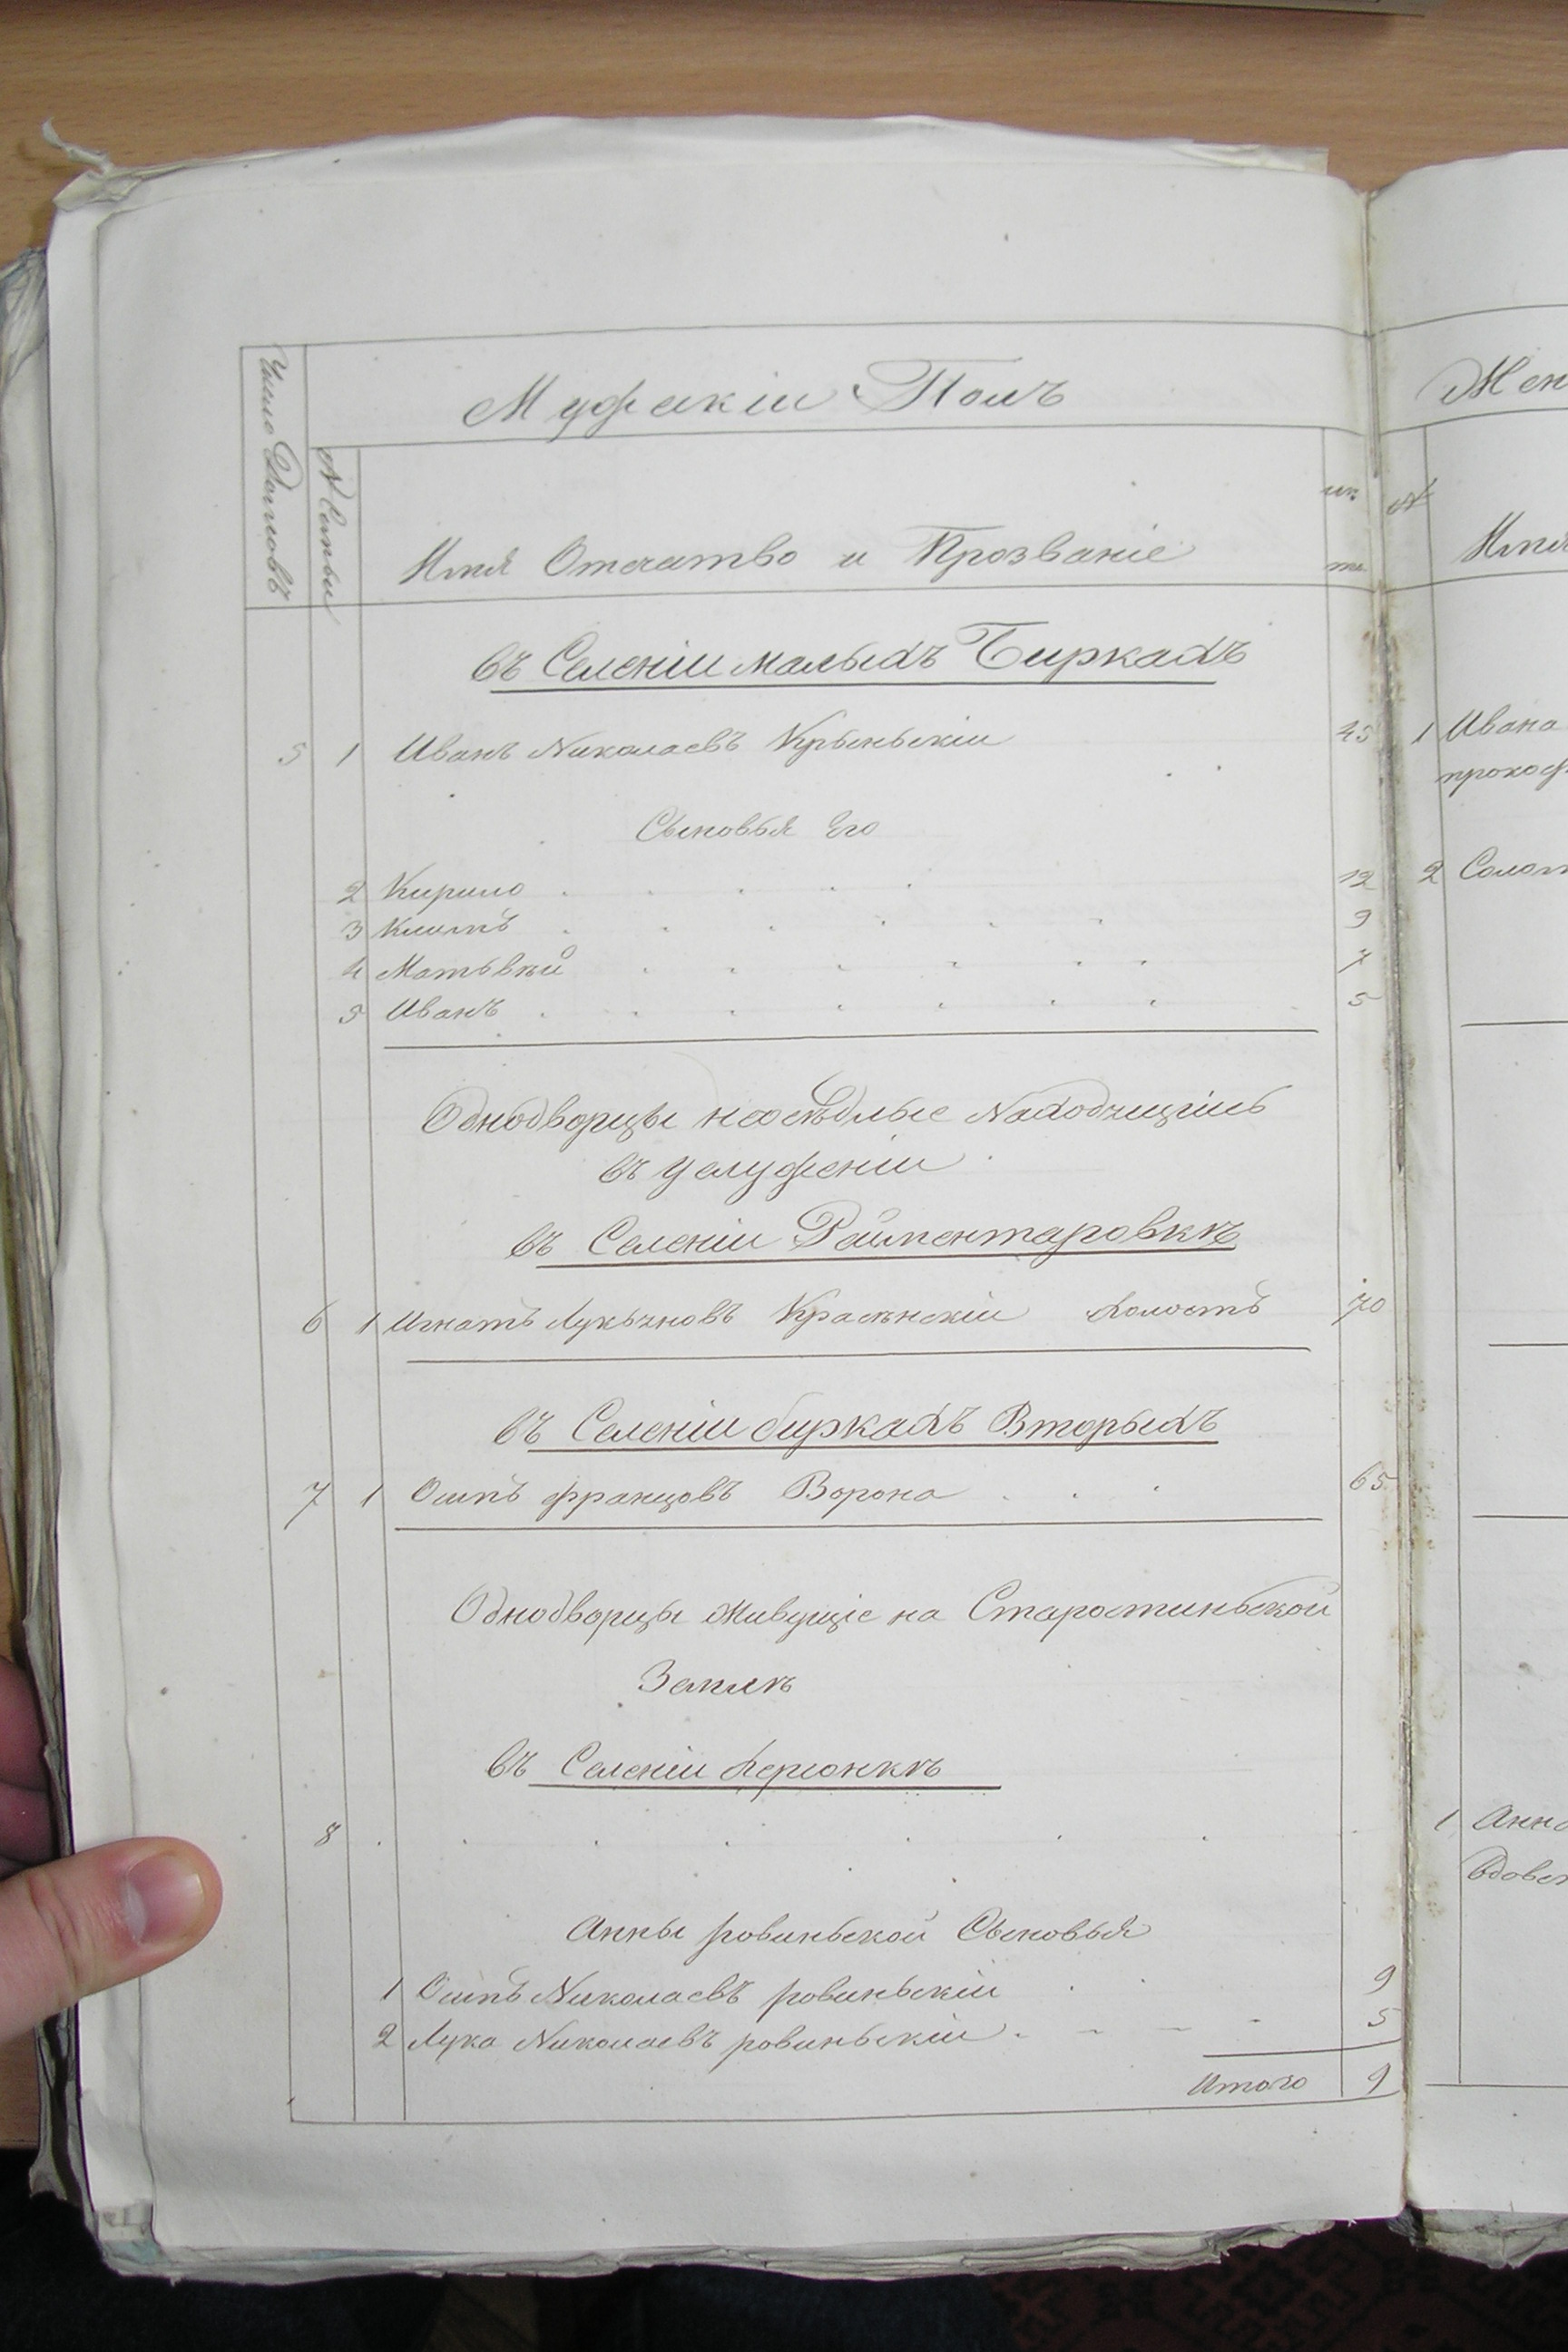 Число Домовъ
№ Семьи
Мужескій Полъ
Имя Отечатво и Прозваніе
въ Селеніи малыхъ Биркахъ
5 1 Иванъ Николаевъ Крыньскіи 45
Сыновья Его
2 Кирило 12
3 Климъ 9
4 Матьвѣй 7
5 Иванъ 5
Однодворцы неосѣдлые Находящіись
въ услуженіи
въ Селеніи Рейментаровкѣ
6 1 Игнатъ Лукьяновъ Красѣнскіи холостъ 70
въ Селеніи биркахъ Вторыхъ
7 1 Осипъ францовъ Ворона 65
Однодворцы Живущіе на Старостиньской
Земли
въ Селеніи
8
Анны ровиньской Сыновья
1 Осипъ Николаевъ ровиньскіи 9
2 Лука Николаевъ ровиньскіи 5
Итого 9
Жен
№
Имя
1 Ивана
прокоф
2 Солом
1 Анна
вдова